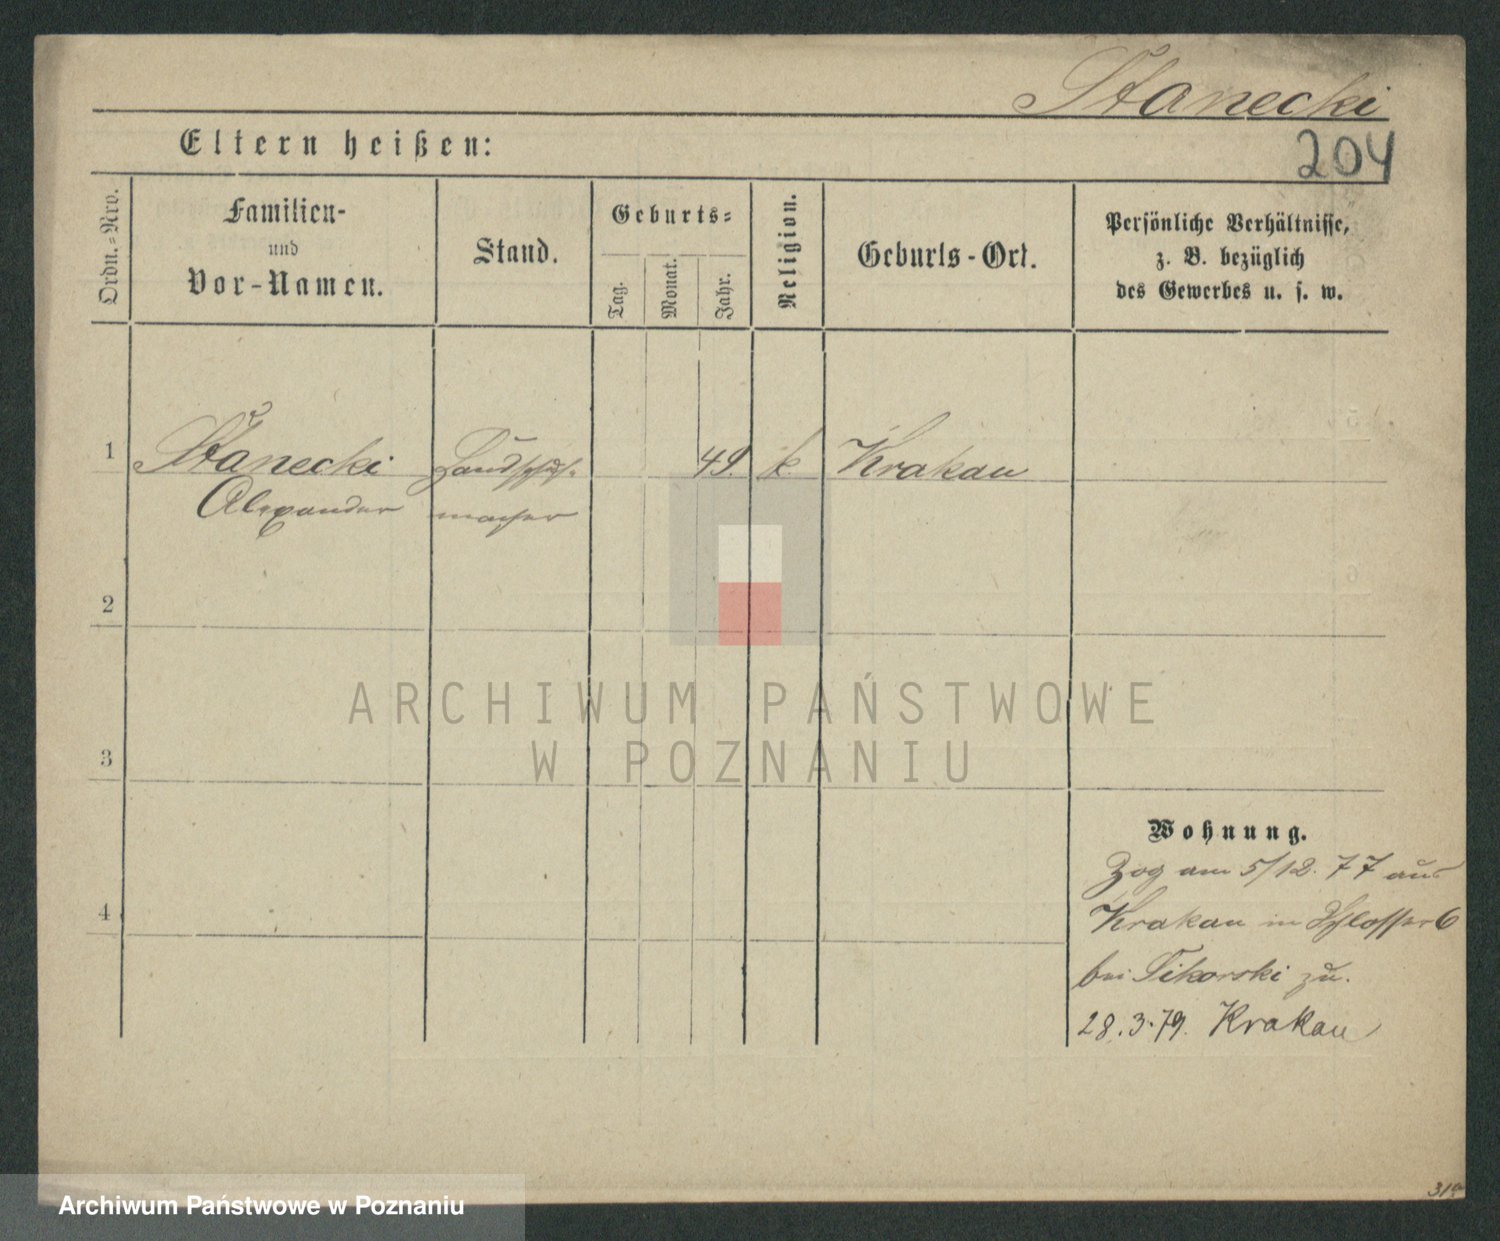 Stanecki
204
Eltern heißen:
Ordn.=Nro.
Familien-
und
Vor-Namen.
Stand.
Geburts=
Tag.
Monat.
Jahr.
Religion.
Geburts-Ort.
Persönliche Verhältnisse,
z. B. bezüglich
des Gewerbes u. s. w.
1
Stanecki
Alexander
Handschuh-
macher
49.
k.
Krakau
2
3
4
ARCHIWUM PAŃSTWOWE
W POZNANIU
Wohnung.
Zog am 5/12. 77 aus
Krakau in Schlosser 6
bei Sikorski zu.
28.3.79. Krakau
Archiwum Państwowe w Poznaniu